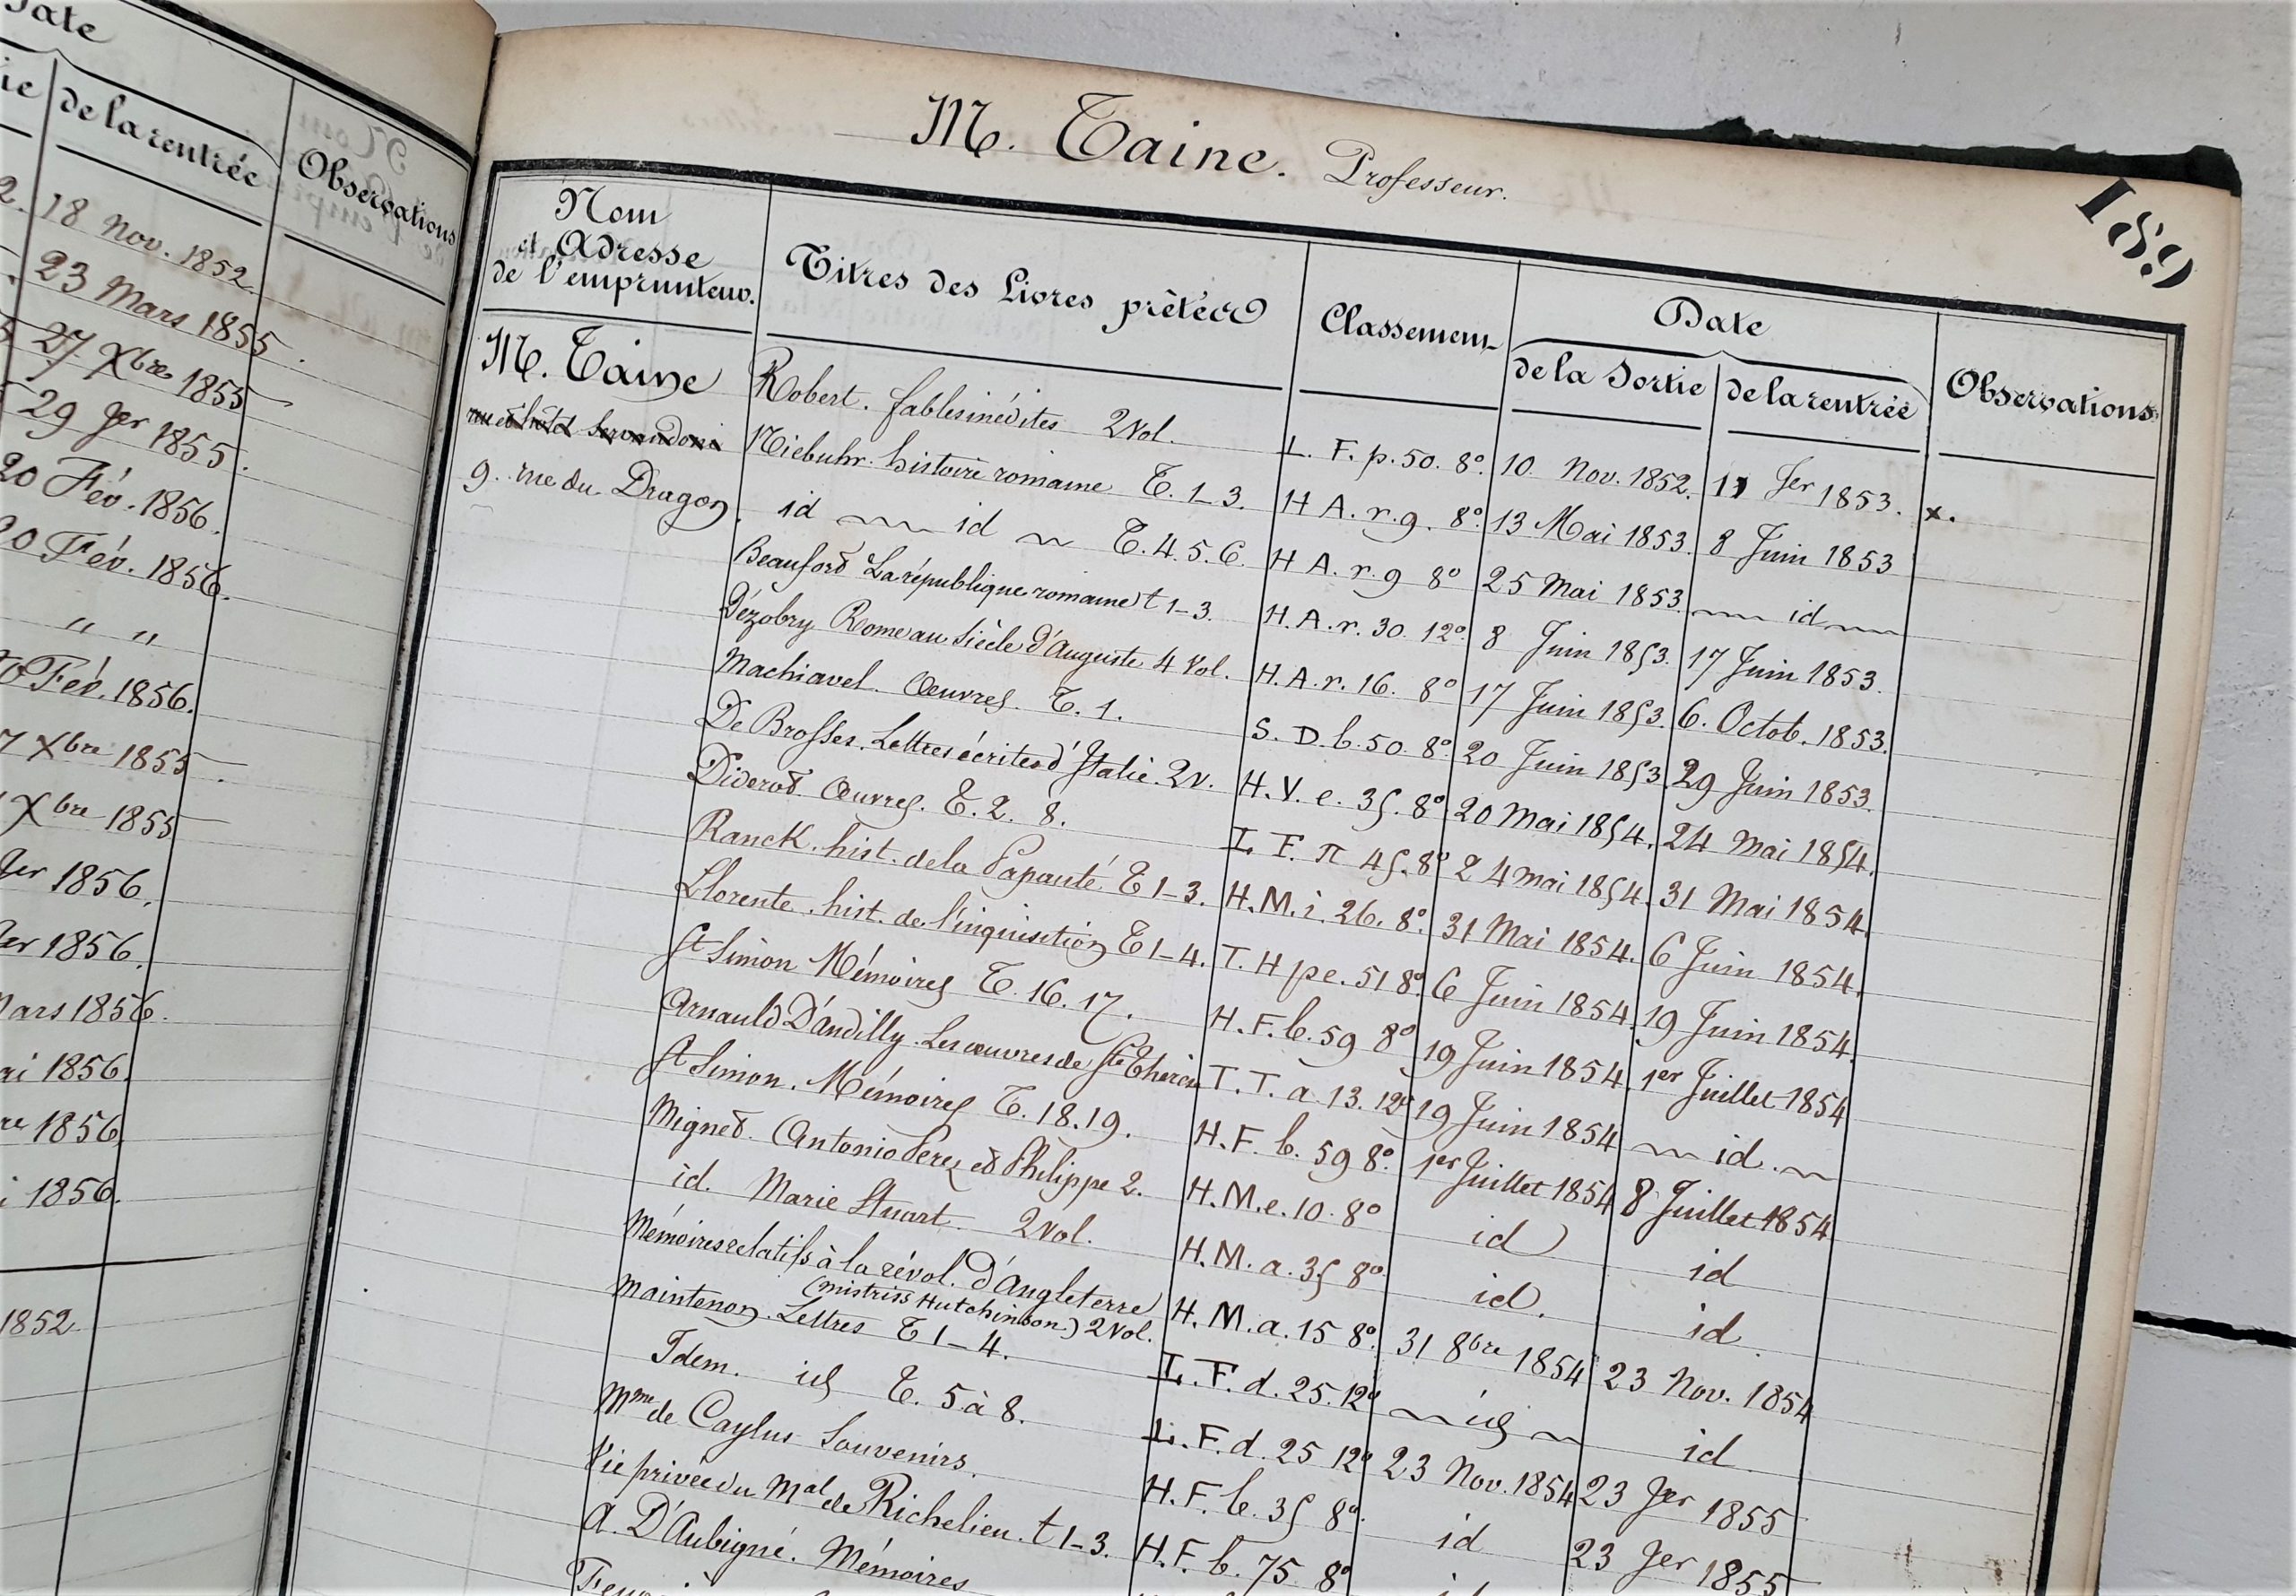 Date
de la rentrée
Observations
2. 18 Nov. 1852.
23 Mars 1855.
27 Xbre 1855
29 Jer 1855.
20 Fév. 1856.
20 Fév. 1856.
" "
Fév. 1856.
7 Xbre 1855.
Xbre 1855
Jer 1856.
1856.
Mars 1856.
1856.
1856.
1856.
1852
M. Taine. Professeur.
189
Nom
et Adresse
de l'emprunteur.
Titres des Livres prêtés
Classement
Date
de la Sortie
de la rentrée
Observations
M. Taine
Servandoni
9. rue du Dragon.
Robert. fables inédites 2 Vol. L. F. p. 50. 8° 10 Nov. 1852. 11 Jer 1853. x.
Niebuhr. histoire romaine T. 1_3. H A. r. 9. 8° 13 Mai 1853. 8 Juin 1853
id id T. 4. 5. 6. H A. r. 9 8° 25 Mai 1853. id
Beaufort La république romaine t 1_3. H. A. r. 30. 12° 8 Juin 1853. 17 Juin 1853.
Dézobry Rome au Siècle d'Auguste 4 Vol. H. A. r. 16. 8° 17 Juin 1853. 6. Octob. 1853.
Machiavel. Œuvres. T. 1. S. D. b. 50. 8° 20 Juin 1853 29 Juin 1853.
De Brosses. Lettres écrites d'Italie. 2 v. H. V. e. 35. 8° 20 Mai 1854. 24 Mai 1854.
Diderot. Œuvres. T. 2. 8. L F. π 45. 8° 24 Mai 1854. 31 Mai 1854.
Ranck. hist. de la Papauté T 1_3. H. M. i. 26. 8° 31 Mai 1854. 6 Juin 1854.
Llorente. hist. de l'inquisition T 1_4. T. H pe. 51 8° 6 Juin 1854. 19 Juin 1854.
St Simon Mémoires T. 16. 17. H. F. b. 59 8° 19 Juin 1854. 1er Juillet 1854
Arnauld D'Andilly. Les œuvres de Ste Thérèse T. T. a. 13. 12° 19 Juin 1854 id.
St Simon. Mémoires T. 18. 19. H. F. b. 59 8° 1er Juillet 1854 8 Juillet 1854
Mignet. Antonio Perez et Philippe 2. H. M. e. 10. 8° id id
id. Marie Stuart. 2 Vol. H. M. a. 35 8° id. id.
Mémoires relatifs à la révol. d'Angleterre
(mistriss Hutchinson) 2 Vol. H. M. a. 15 8° 31 8bre 1854 23 Nov. 1854
Maintenon. Lettres T 1_4. L. F. d. 25. 12° id id
Idem. id T. 5 à 8. L. F. d. 25 12° 23 Nov. 1854 23 Jer 1855
Mme de Caylus Souvenirs. H. F. b. 35 8° id 23 Jer 1855
Vie privée du Mal de Richelieu. t 1_3. H. F. b. 75 8°
A. D'Aubigné. Mémoires